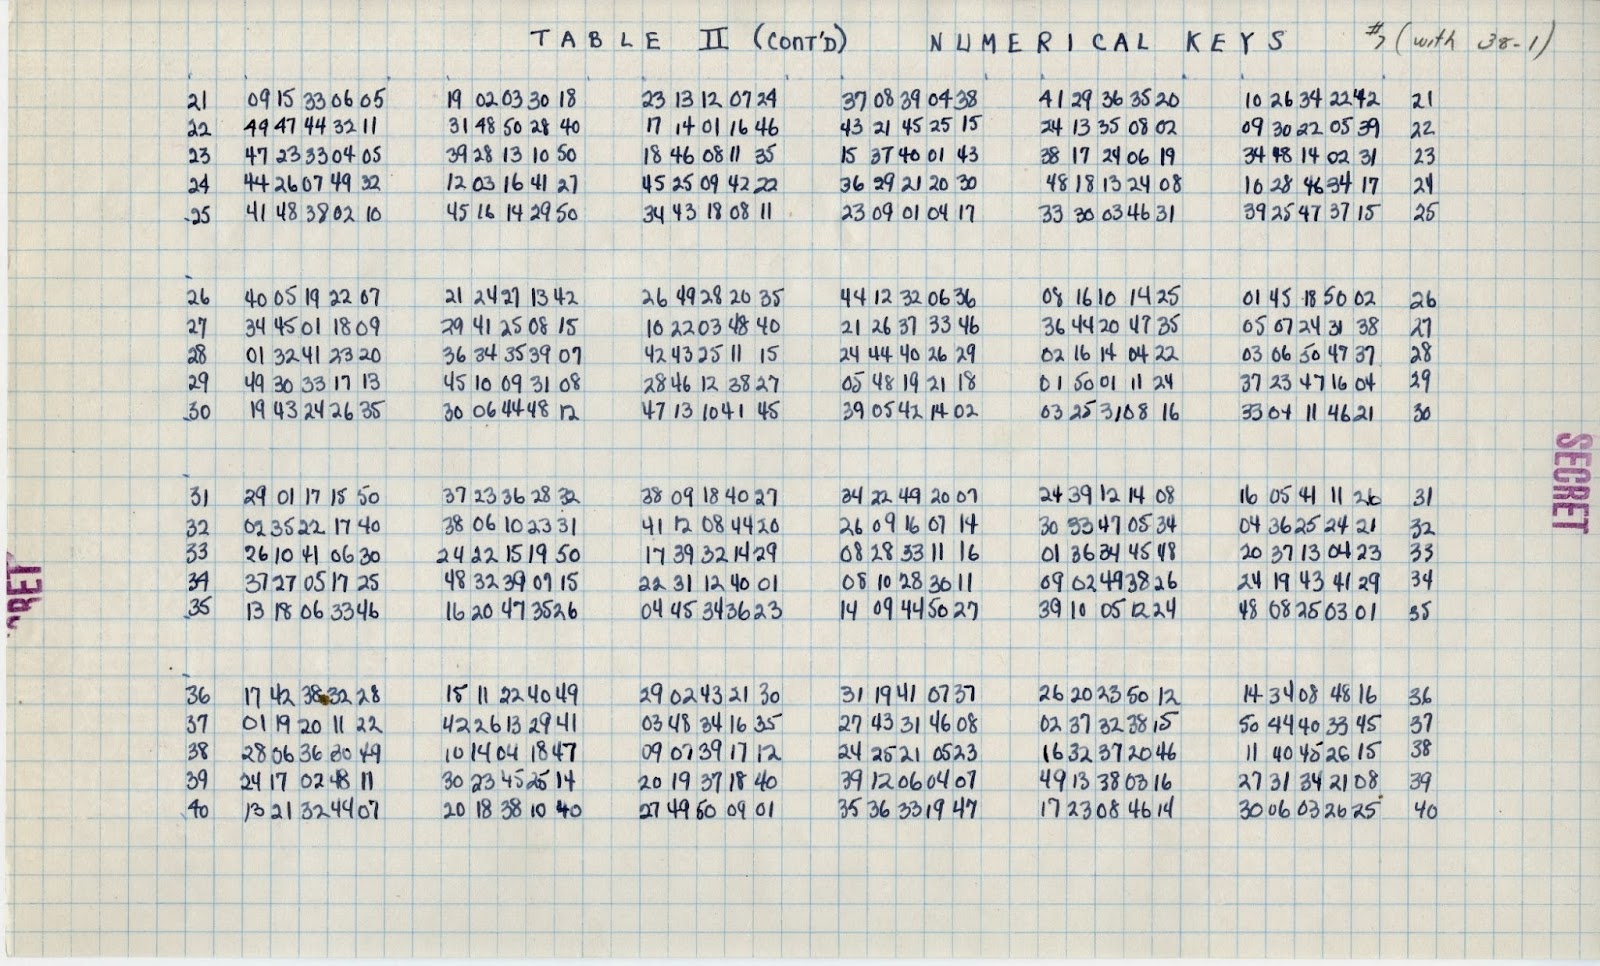 TABLE II (CONT'D) NUMERICAL KEYS #7 (with 38-1)
21 09 15 33 06 05 19 02 03 30 18 23 13 12 07 24 37 08 39 04 38 41 29 36 35 20 10 26 34 22 42 21
22 49 47 44 32 11 31 48 50 28 40 17 14 01 16 46 43 21 45 25 15 24 13 35 08 02 09 30 22 05 39 22
23 47 23 33 04 05 39 28 13 10 50 18 46 08 11 35 15 37 40 01 43 38 17 24 06 19 34 48 14 02 31 23
24 44 26 07 49 32 12 03 16 41 27 45 25 09 42 22 36 29 21 20 30 48 18 13 24 08 10 28 46 34 17 24
25 41 48 38 02 10 45 16 14 29 50 34 43 18 08 11 23 09 01 04 17 33 30 03 46 31 39 25 47 37 15 25
26 40 05 19 22 07 21 24 27 13 42 26 49 28 20 35 44 12 32 06 36 08 16 10 14 25 01 45 18 50 02 26
27 34 45 01 18 09 29 41 25 08 15 10 22 03 48 40 21 26 37 33 46 36 44 20 47 35 05 07 24 31 38 27
28 01 32 41 23 20 36 34 35 39 07 42 43 25 11 15 24 44 40 26 29 02 16 14 04 22 03 06 50 47 37 28
29 49 30 33 17 13 45 10 09 31 08 28 46 12 38 27 05 48 19 21 18 01 50 01 11 24 37 23 47 16 04 29
30 19 43 24 26 35 30 06 44 48 12 47 13 10 41 45 39 05 42 14 02 03 25 31 08 16 33 04 11 46 21 30
31 29 01 17 15 50 37 23 36 28 32 38 09 18 40 27 34 22 49 20 07 24 39 12 14 08 16 05 41 11 26 31
32 02 35 22 17 40 38 06 10 23 31 41 12 08 44 20 26 09 16 07 14 30 33 47 05 34 04 36 25 24 21 32
33 26 10 41 06 30 24 22 15 19 50 17 39 32 14 29 08 28 33 11 16 01 36 34 45 48 20 37 13 04 23 33
34 37 27 05 17 25 48 32 39 07 15 22 31 12 40 01 08 10 28 30 11 09 02 49 38 26 24 19 43 41 29 34
35 13 18 06 33 46 16 20 47 35 26 04 45 34 36 23 14 09 44 50 27 39 10 05 12 24 48 08 25 03 01 35
36 17 42 38 32 28 15 11 22 40 49 29 02 43 21 30 31 19 41 07 37 26 20 23 50 12 14 34 08 48 16 36
37 01 19 20 11 22 42 26 13 29 41 03 48 34 16 35 27 43 31 46 08 02 37 32 38 15 50 44 40 33 45 37
38 28 06 36 30 49 10 14 04 18 47 09 07 39 17 12 24 25 21 05 23 16 32 37 20 46 11 40 45 26 15 38
39 24 17 02 48 11 30 23 45 25 14 20 19 37 18 40 39 12 06 04 07 49 13 38 03 16 27 31 34 21 08 39
40 13 21 32 44 07 20 18 38 10 40 27 49 50 09 01 35 36 33 19 47 17 23 08 46 14 30 06 03 26 25 40
SECRET